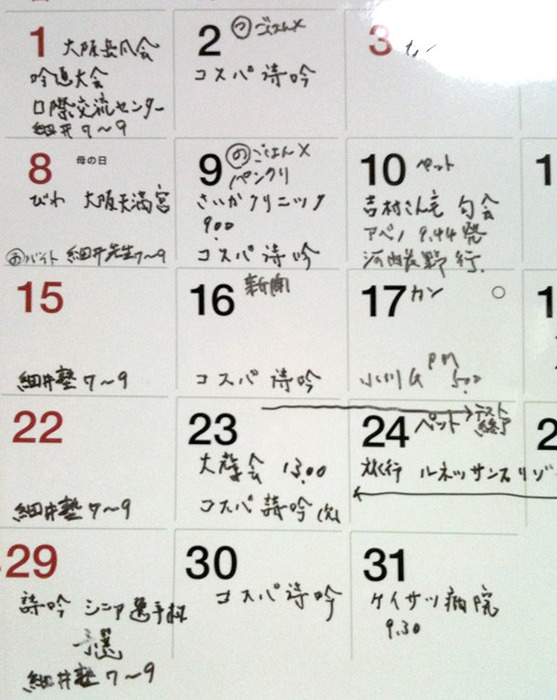 1 大阪吟爪会
吟道大会
口際交流センター
細井 7～9
2 ごはん×
コスパ 詩吟
3
8 母の日
びわ 大阪天満宮
バイト 細井先生 7～9
9 の ごはん×
パンクリ
さいかクリニック
900
コスパ 詩吟
10 ペット
吉村さん宅 句会
アベノ 9.44発
河内長野 行
1
15
細井塾 7～9
16 新聞
コスパ 詩吟
17 カン
PM
小川G 5.00
1
22
細井塾 7～9
23
13.00
コスパ 詩吟
24 ペット テスト
終了
旅行 ルネッサンスリゾ
2
29
詩吟 シニア選手权
予選
細井塾 7～9
30
コスパ 詩吟
31
ケイサツ病院
9.30